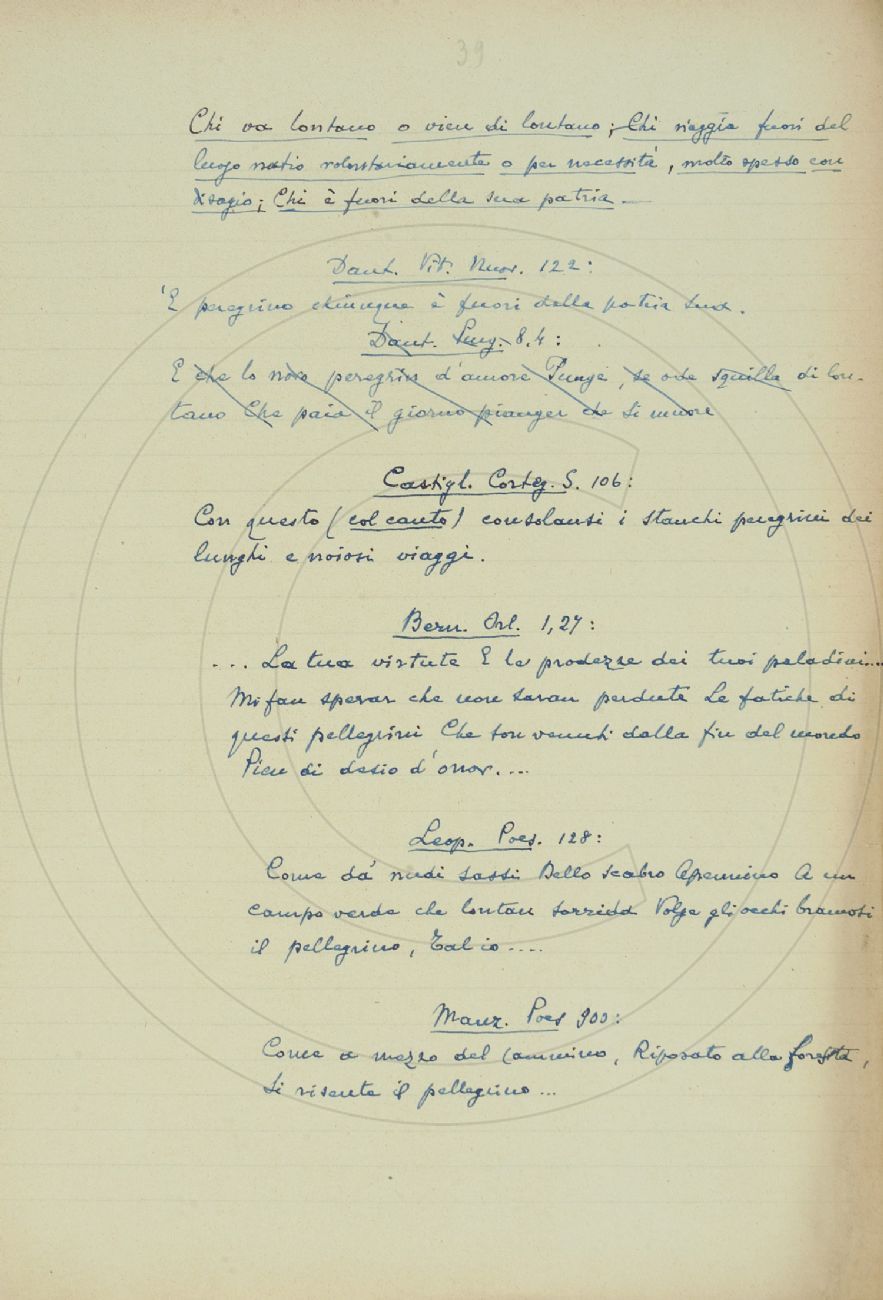 39
Chi va lontano o vien di lontano; Chi viaggia fuori del
luogo natio volontariamente o per necessità, molto spesso con
disagio; Chi è fuori della sua patria.—
Dant. Vit. Nuov. 122:
'E peregrino chiunque è fuori della patria sua.
Dant. Purg. 8.4:
E che lo novo peregrin d'amore Punge, se ode squilla di lon-
tano Che paia il giorno pianger che si muore
Castigl. Corteg. S. 106:
Con questo (col canto) consolansi i stanchi peregrini dei
lunghi e noiosi viaggi.
Bern. Orl. 1,27:
... La tua virtute E le prodezze dei tuoi paladini...
Mi fan sperar che non saran perdute Le fatiche di
questi pellegrini Che son venuti dalla fin del mondo
Pien di desio d'onor....
Leop. Poes. 128:
Come da' nudi sassi Dello scabro Apennino A un
campo verde che lontan sorrida Volge gli occhi bramosi
il pellegrino, Tal io....
Manz. Poes 900:
Come a mezzo del cammino, Riposato alla foresta,
Si risente il pellegrino...